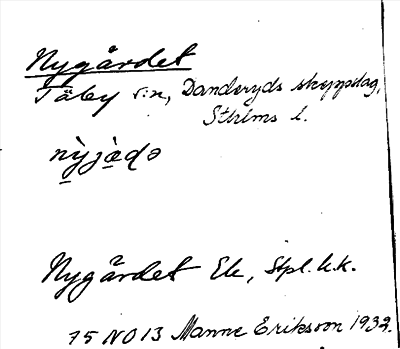 Nygårdet
Täby s:n, Danderyds skeppslag,
Sthlms l.
Nygårdet Ek, Stpl. k.k.
75 NO 13 Manne Eriksson 1932.